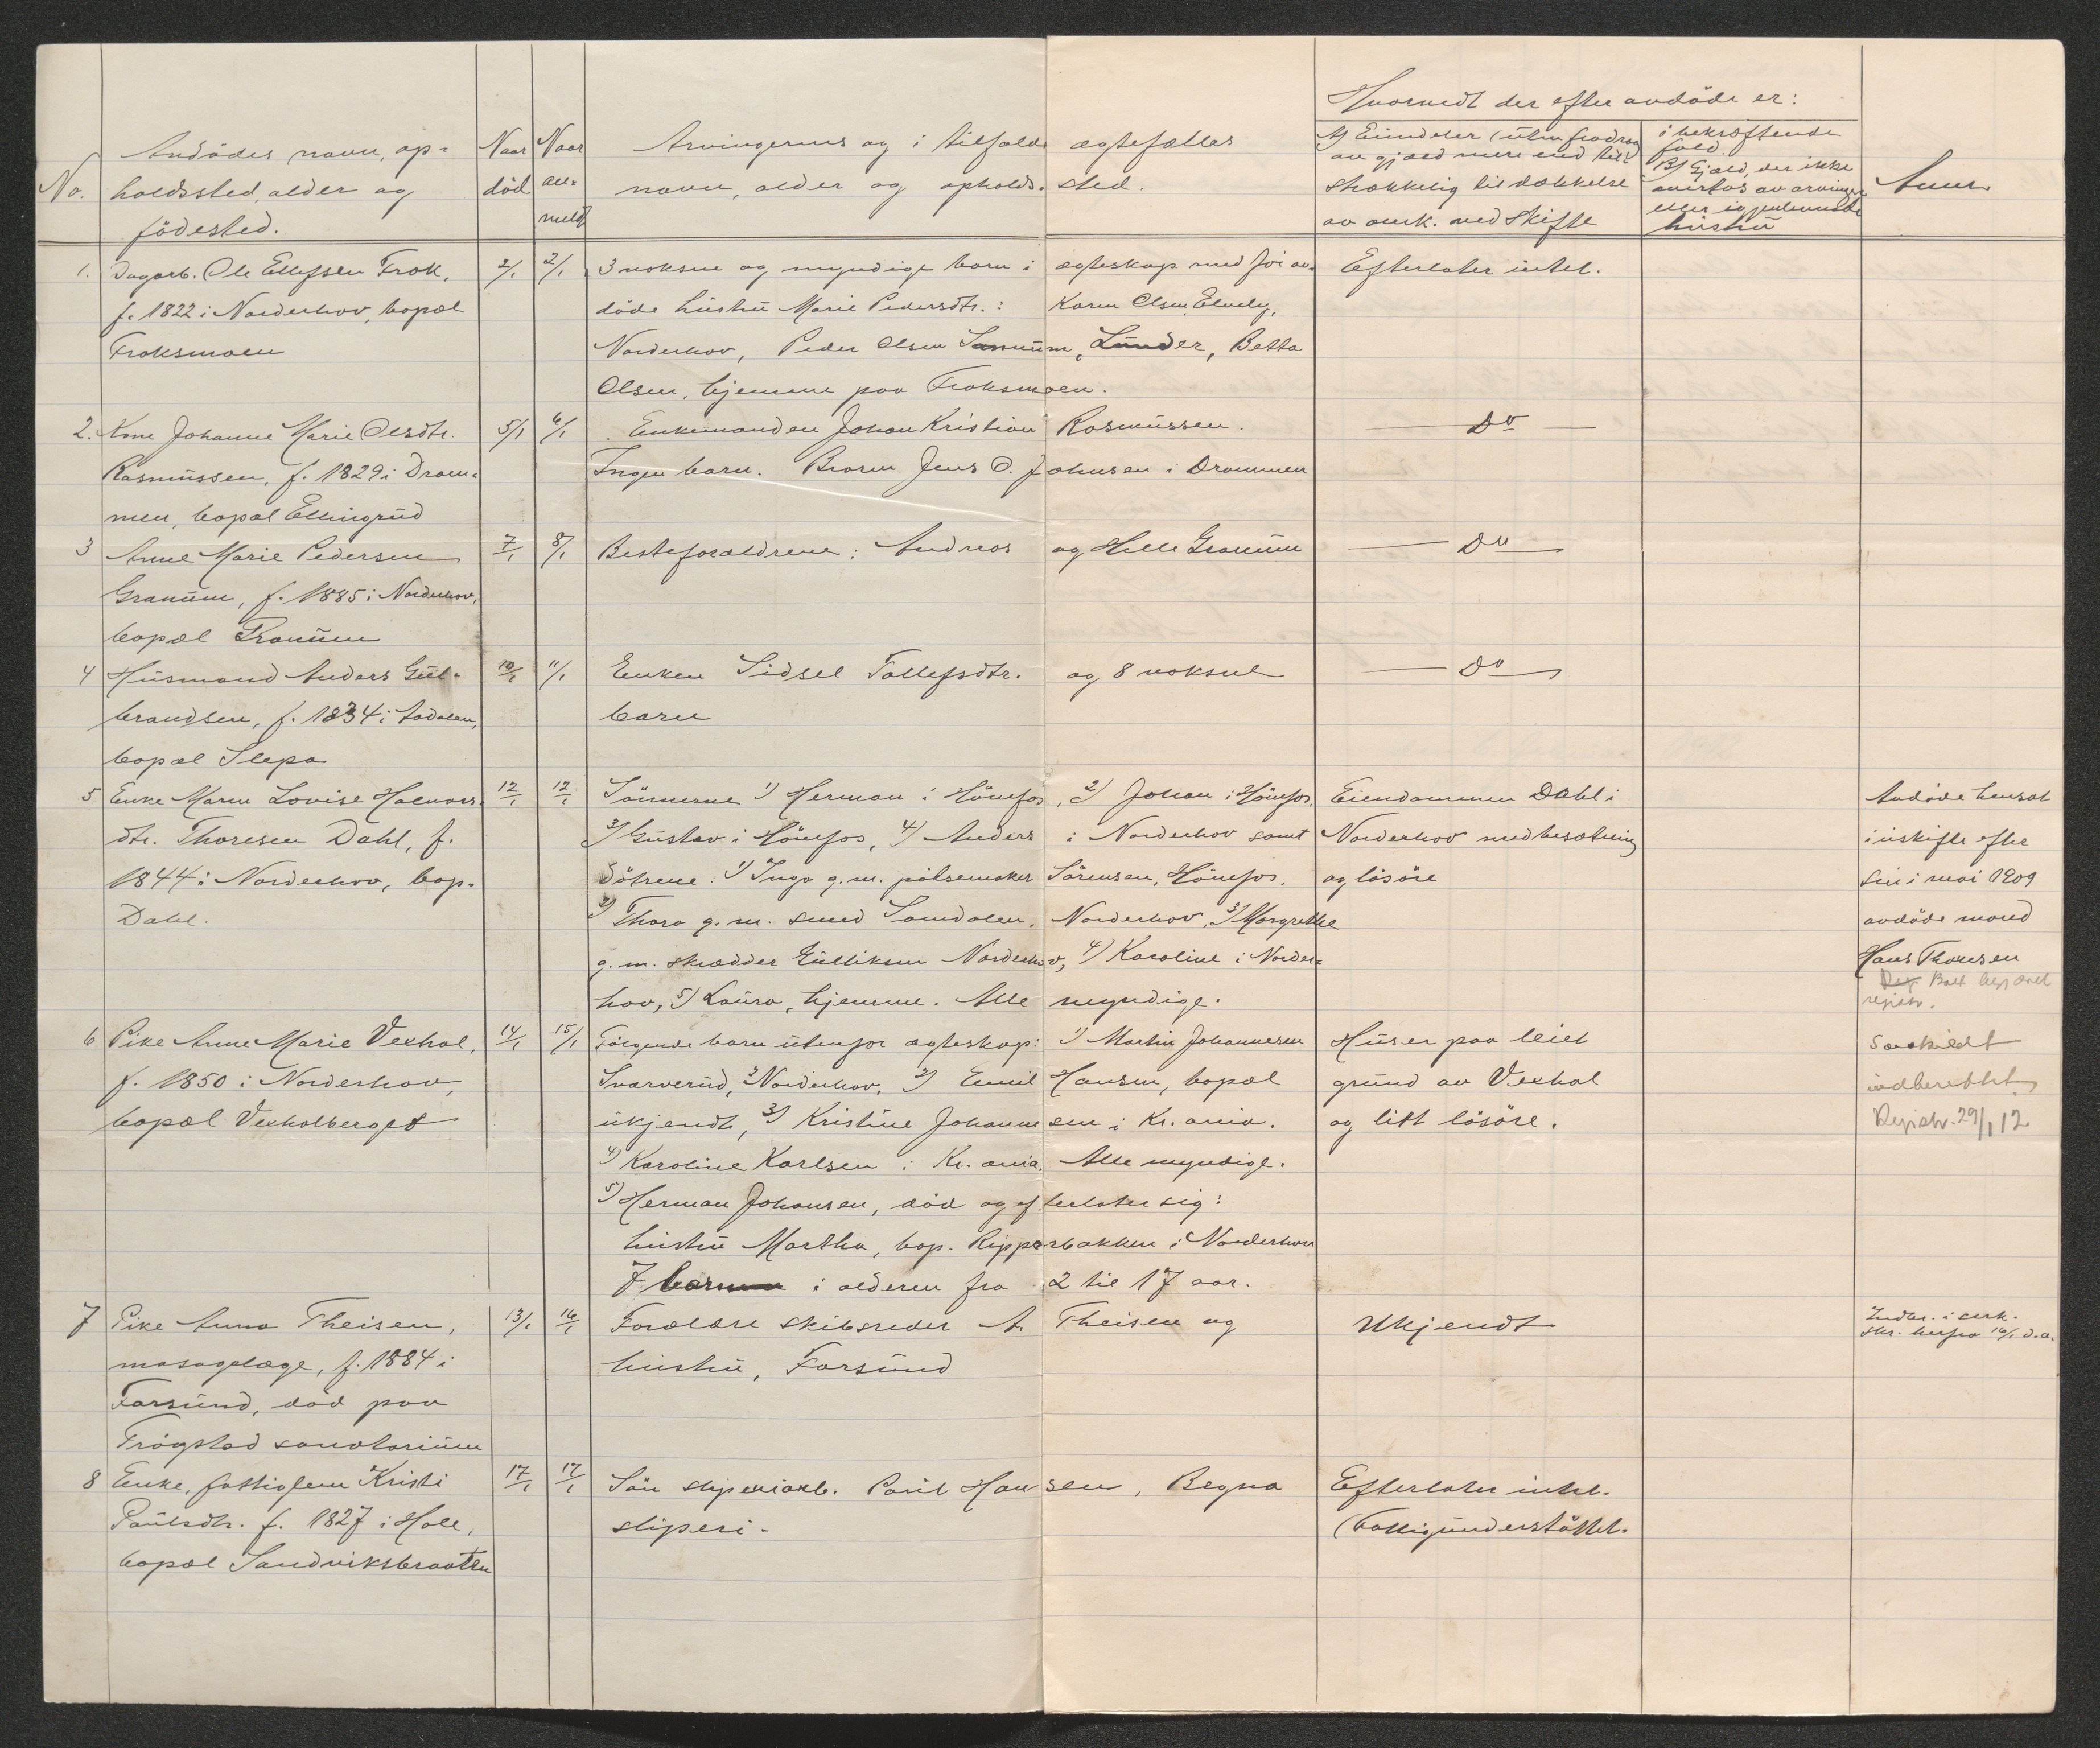 No.
Avdödes navn, op=
holdssted, alder og
födested.
Naar
död
Naar
an=
meldt
Arvingernes og i tilfælde ægtefælles
navn, alder og opholds-sted.
Hvorvidt der efter avdöde er:
A) Eiendeler (uten fradrag
av gjæld mere end til=
strækkelig til dækkelse
av omk. med skifte
i bekræftende
fald.
B) Gjæld, der ikke
overtas av arvinger
eller igjenlevende
hustru
Anm.
1. Dagarb. Ole Ellefsen Frok, 2/1 2/1 3 voksne og myndige barn i ægteskap med før av= Efterlater intet.
f. 1822 i Norderhov, bopæl döde hustru Marie Pedersdtr.: Karen Olsen, Elvely,
Froksmoen Norderhov, Peder Olsen Somrum, Lunder, Betta
Olsen, hjemme paa Froksmoen.
2. Kone Johanne Marie Olsdtr. 5/1 6/1 Enkemanden Johan Kristian Rasmussen. Do
Rasmussen, f. 1829 i Dram= Ingen barn. Broren Jens O. Johnsen i Drammen
men, bopæl Ellingrud
3 Anne Marie Pedersen 7/1 8/1 Besteforældrene: Andreas og Helle Granum Do
Granum, f. 1885 i Norderhov,
bopæl Granum
4 Husmand Anders Gul= 10/1 11/1 Enken Sidsel Tollefsdtr. og 8 voksne Do
brandsen, f. 1834 i Aadalen, barn
bopæl Slepa
5 Enke Maren Lovise Halvors= 12/1 12/1 Sönnerne 1) Herman i Hönefos, 2) Johan i Hönefos. Eiendommen Dahl i Avdöde hensat
dtr. Thoresen Dahl, f. 3) Gustav i Hönefos, 4) Anders i Norderhov samt Norderhov med besætning i uskifte efter
1844 i Norderhov, bop. Dötrene: 1) Inga g.m. pölsemaker Sörensen, Hönefos. og lösöre sin i mai 1909
Dahl. 2) Thora g.m. smed Somdalen, Norderhov, 3) Margrethe avdöde mand
g.m. skrædder Gulliksen Norderhov, 4) Karoline i Norder= Hans Thoresen
Boet begjæret
hov, 5) Laura, hjemme. Alle myndige. registr.
6 Pike Anne Marie Vexhal, 14/1 15/1 Fölgende barn utenfor ægteskap: 1) Martin Johannesen Huser paa leiet Særskildt
f. 1850 i Norderhov, Svarverud, Norderhov, 2) Emil Hansen, bopæl grund av Vexhal indberettet
bopæl Vexhalberget ukjendt, 3) Kristine Johannesen i Kr.ania. og litt lösöre. Registr. 29/1 12
4) Karoline Karlsen i Kr.ania. Alle myndige.
5) Herman Johansen, död og efterlater sig:
hustru Martha, bop. Ripperbakken i Norderhov
7 barn i alderen fra 2 til 17 aar.
7 Pike Anna Theisen, 13/1 16/1 Forældre skibsreder A. Theisen og Ukjendt Indber. i serk.
massagelæge, f. 1884 i hustru, Farsund skr. herfra 16/1 d.a.
Farsund, död paa
Frögstad sanatorium
8 Enke, fattiglem Kristi 17/1 17/1 Sön sliperiarb. Paul Hansen, Begna Efterlater intet.
Paulsdtr. f. 1827 i Hole, sliperi. (Fattigunderstöttet.
bopæl Sandviksbraaten